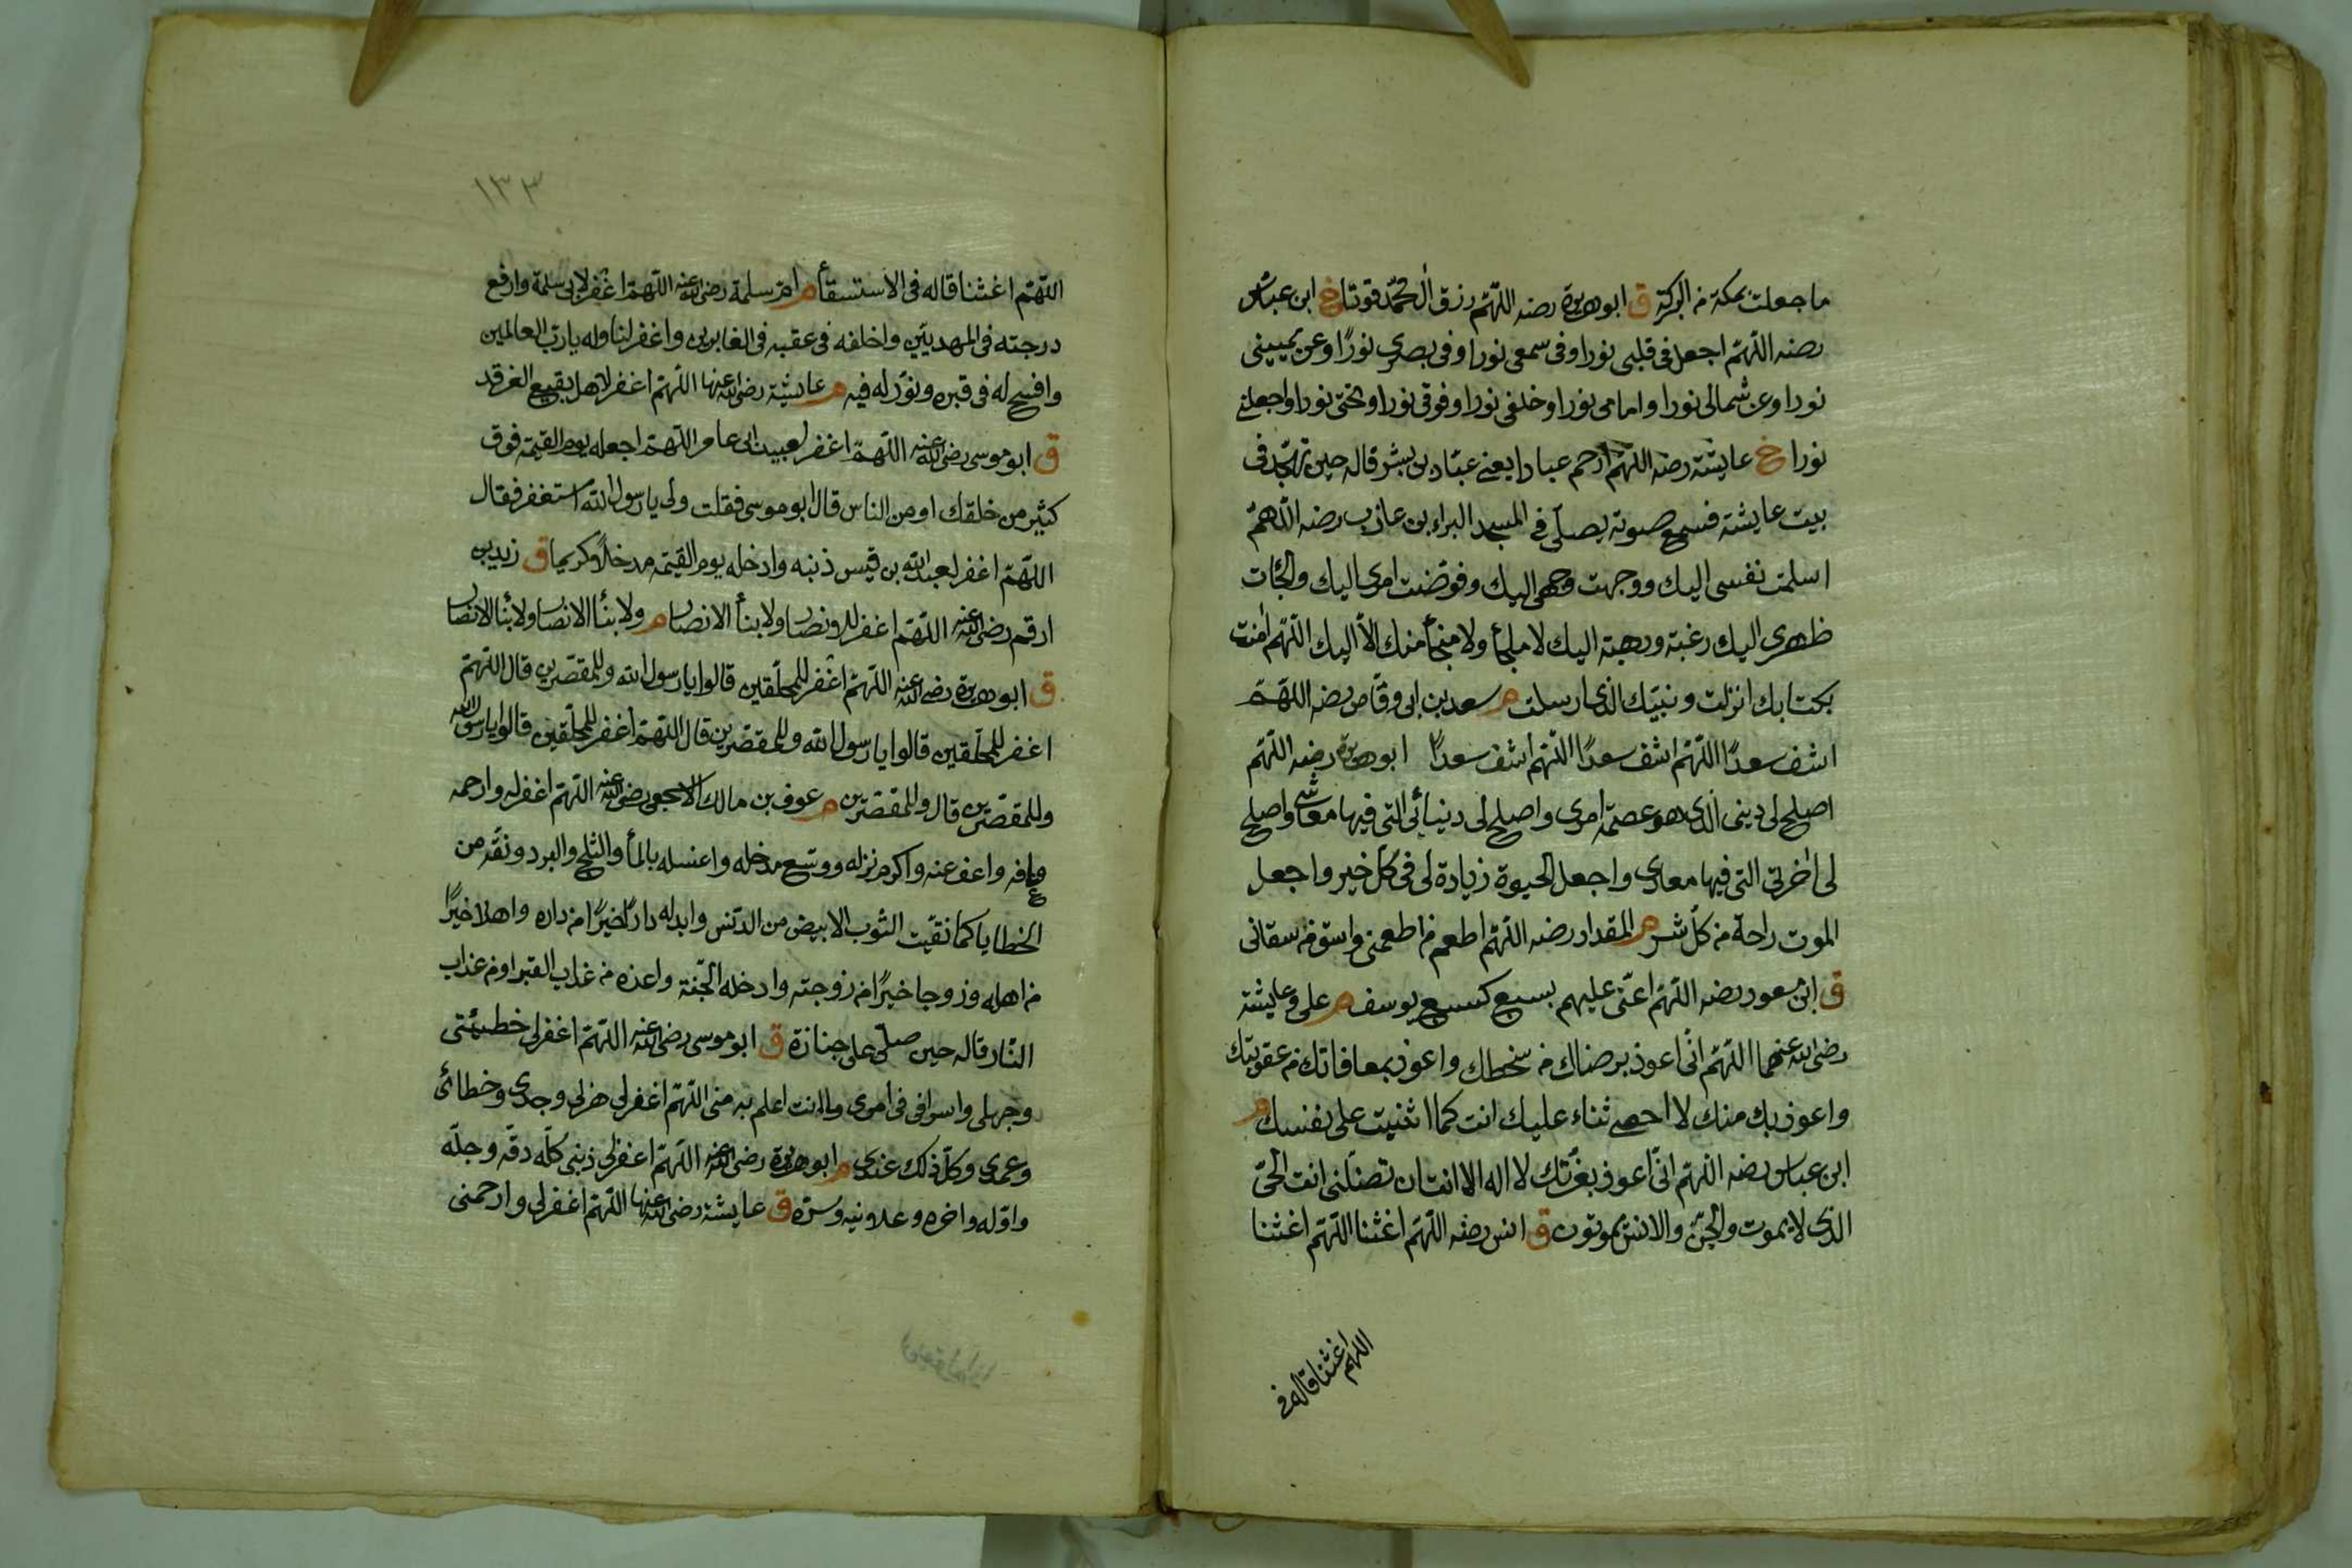 ما جعلت بمكة من البركة ق ابو هريرة رضه اللهم رزق آل محمد قوتا خ ابن عباس
رضه اللهم اجعل في قلبى نورا وفى سمعى نورا وفى بصرى نورًا وعن يمينى
نورا وعن شمالى نورا وامامى نورا وخلفى نورا وفوقى نورا وتحتى نورا واجعلنى
نورا خ عايشة رضه اللهم ارحم عبادا يعنى عباد بن بشر قاله حين تهجد فى
بيت عايشة فسمع صوته يصلى فى المسجد البراء بن عازب رضه اللهم
اسلمت نفسى اليك ووجهت وجهى اليك وفوضت امرى اليك والجأت
ظهرى اليك رغبة ورهبة اليك لا ملجأ ولا منجأ منك الا اليك اللهم امنت
بكتابك انزلت ونبيك الذى ارسلت م سعد بن ابى وقاص رضه اللهم
اشف سعدًا اللهم اشف سعدًا اللهم اشف سعدًا ابو هريرة رضه اللهم
اصلح لى دينى الذى هو عصمة امرى واصلح لى دنيائى التى فيها معاشى واصلح
لى اخرتى التى فيها معادى واجعل الحيوة زيادة لى فى كل خير واجعل
الموت راحة من كل شر م المقداد رضه اللهم اطعم من اطعمنى واسق من سقانى
ق ابن مسعود رضه اللهم اعنى عليهم بسبع كسبع يوسف م على وعايشة
رضى الله عنهما اللهم انى اعوذ برضاك من سخطك واعوذ بمعافاتك من عقوبتك
واعوذ بك منك لا احصى ثناء عليك انت كما اثنيت على نفسك م
ابن عباس رضه اللهم انى اعوذ بعزتك لا اله الا انت ان تضلنى انت الحى
الذى لا يموت والجن والانس يموتون ق انس رضه اللهم اغثنا اللهم اغثنا
اللهم اغثنا قاله فى
١٣٣
اللهم اغثنا قاله فى الاستسقأ م ام سلمة رضى الله عنه اللهم اغفر لابى سلمة وارفع
درجته فى المهديين واخلفه فى عقبه فى الغابرين واغفر لنا وله يا رب العالمين
وافسح له فى قبره ونور له فيه م عايشة رضى الله عنها اللهم اغفر لاهل بقيع الغرقد
ق ابو موسى رضى الله عنه اللهم اغفر لعبيد ابى عامر اللهم اجعله يوم القيمة فوق
كثير من خلقك او من الناس قال ابو موسى فقلت ولى يا رسول الله استغفر فقال
اللهم اغفر لعبد الله بن قيس ذنبه وادخله يوم القيمة مدخلًا كريما ق زيد بن
ارقم رضى الله عنه اللهم اغفر للانصار ولابنأ الانصار م ولابنأ الانصار ولابنأ الانصار
ق ابو هريرة رضى الله عنه اللهم اغفر للمحلقين قالوا يا رسول الله وللمقصرين قال اللهم
اغفر للمحلقين قالوا يا رسول الله وللمقصرين قال اللهم اغفر للمحلقين قالوا يا رسول الله
وللمقصرين قال وللمقصرين م عوف بن مالك الاشجعى رضى الله عنه اللهم اغفر له وارحمه
وعافه واعف عنه واكرم نزله ووسع مدخله واغسله بالمأ والثلج والبرد ونقه من
الخطايا كما نقيت الثوب الابيض من الدنس وابدله دارًا خيرًا من داره واهلا خيرًا
من اهله وزوجا خيرًا من زوجته وادخله الجنة واعذه من عذاب القبر او من عذاب
النار قاله حين صلى على جنازة ق ابو موسى رضى الله عنه اللهم اغفر لى خطيئتى
وجهلى واسرافى فى امرى وما انت اعلم به منى اللهم اغفر لى هزلى وجدى وخطائى
وعمدى وكل ذلك عندى م ابو هريرة رضى الله عنه اللهم اغفر لى ذنبى كله دقه وجله
واوله واخره وعلانيه وسره ق عايشة رضى الله عنها اللهم اغفر لى وارحمنى